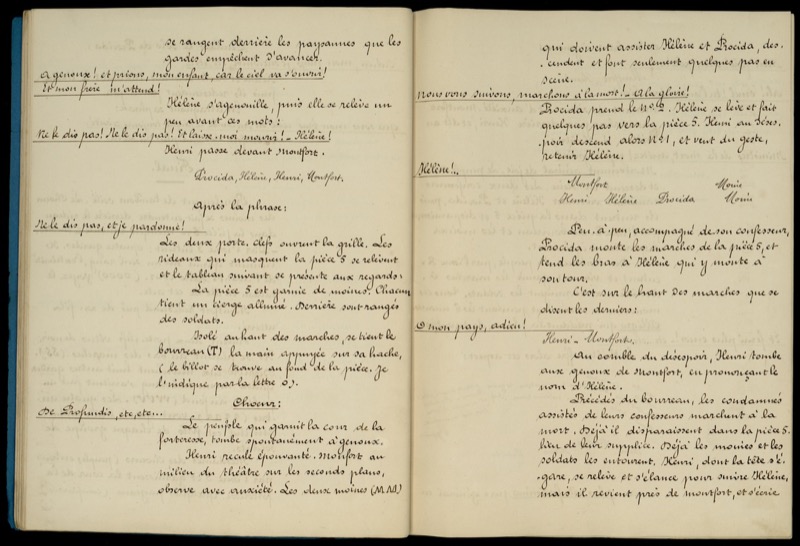 se rangent derrière les paysannes que les
gardes empêchent d'avancer.
A genoux! et prions, mon enfant, car le ciel va s'ouvrir!
Et mon frère m'attend!
Hélène s'agenouille, puis elle se relève un
peu avant ces mots:
Ne le dis pas! Ne le dis pas! Et laisse-moi mourir! - Hélène!
Henri passe devant Montfort.
Procida, Hélène, Henri, Montfort.
Après la phrase:
Ne le dis pas, et je pardonne!
Les deux porte-clefs ouvrent la grille. Les
rideaux qui masquent la pièce 5 se relèvent
et le tableau suivant se présente aux regards:
La pièce 5 est garnie de moines. Chacun
tient un cierge allumé. Derrière sont rangés
des soldats.
Isolé au haut des marches, se tient le
bourreau (T) la main appuyée sur sa hache,
( le billot se trouve au fond de la pièce. Je
l'indique par la lettre O).
Choeur:
De Profundis, etc, etc...
Le peuple qui garnit la cour de la
forteresse, tombe spontanément à genoux.
Henri recule épouvanté. Montfort au
milieu du théâtre sur les seconds plans,
observe avec anxiété. Les deux moines (M M)
qui doivent assister Hélène et Procida, des-
-cendent et font seulement quelques pas en
scène.
Nous vous suivons, marchons à la mort! - A la gloire!
Procida prend le No. 2. Hélène se lève et fait
quelques pas vers la pièce 5. Henri au déses-
-poir descend alors No 1, et veut du geste,
retenir Hélène.
Hélène!..
Montfort Moine
Henri Hélène Procida Moine
Peu-à-peu, accompagné de son confesseur,
Procida monte les marches de la pièce 5, et
tend les bras à Hélène qui y monte à
son tour.
C'est sur le haut des marches que se
disent les derniers:
O mon pays, adieu!
Henri - Montfort.
Au comble du désespoir, Henri tombe
aux genoux de Montfort, en prononçant le
nom d'Hélène.
Précédés du bourreau, les condamnés
assistés de leurs confesseurs marchent à la
mort. Déjà il disparaissent dans la pièce 5.
lieu de leur supplice. Déjà les moines et les
soldats les entourent. Henri, dont la tête s'é-
-gare, se relève et s'élance pour suivre Hélène,
mais il revient près de Montfort, et s'écrie